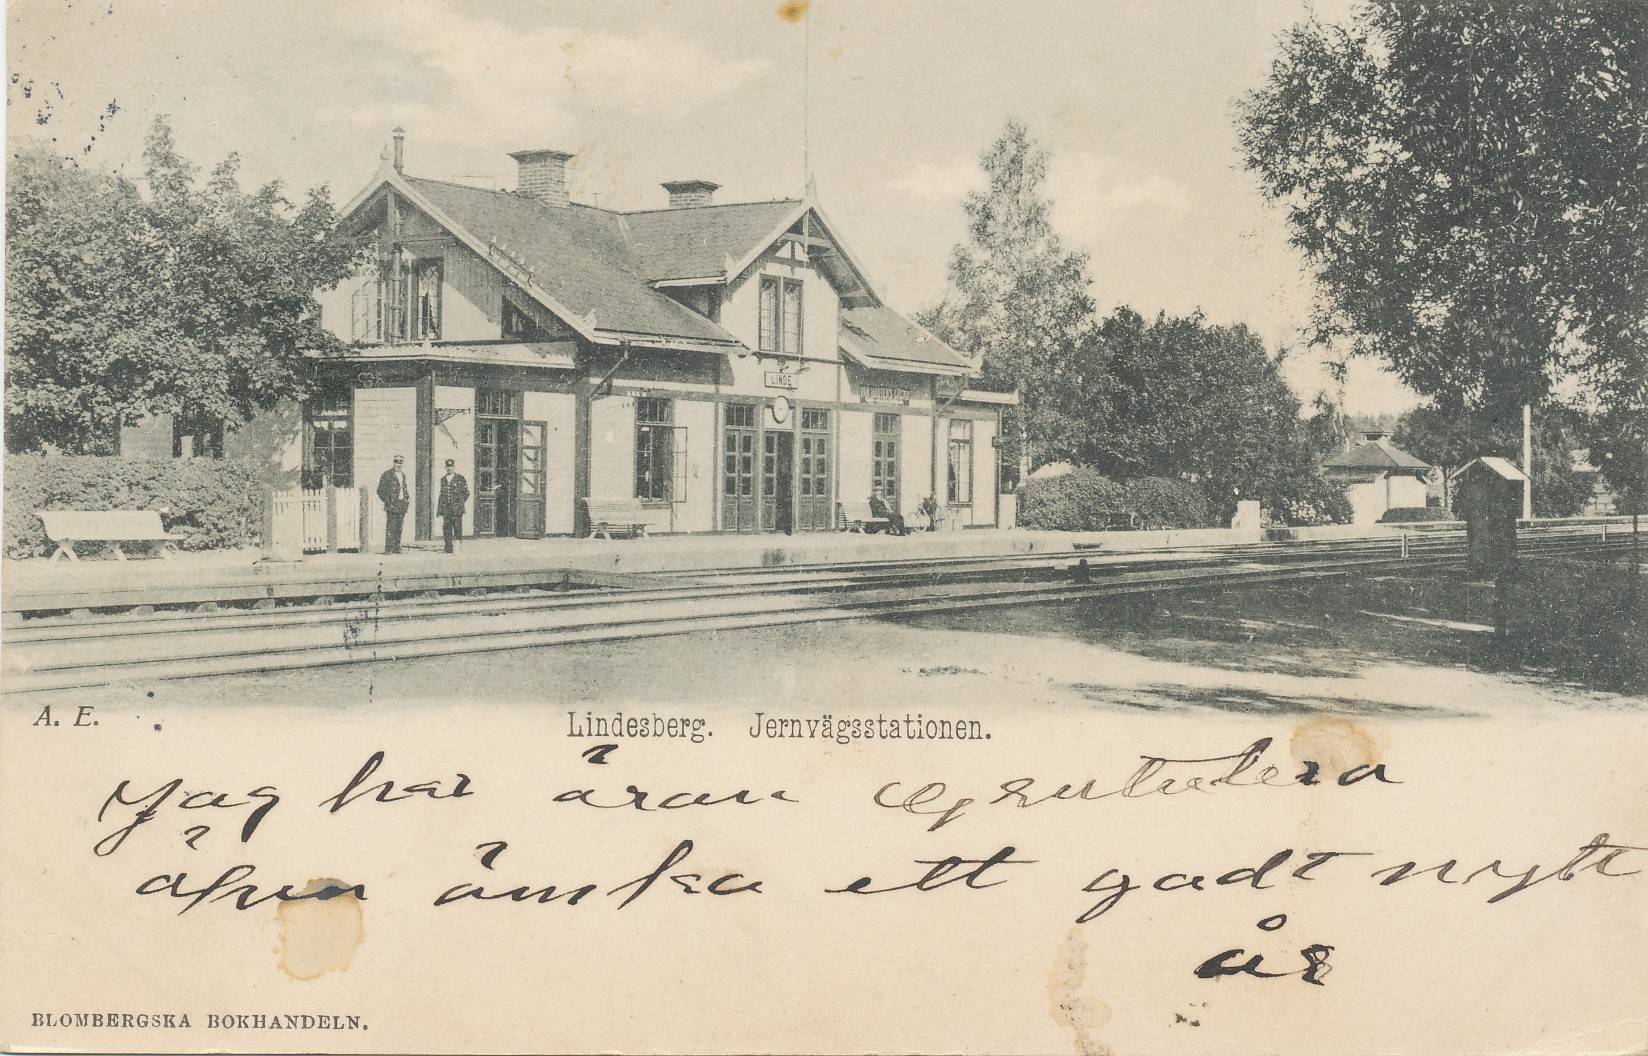 LINDE
A. E.
Lindesberg. Jernvägsstationen.
Jag har äran gratulera
äfven önska ett godt nytt
år
BLOMBERGSKA BOKHANDELN.